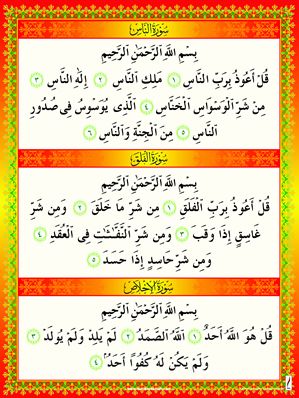 سُورَةُ النَّاسِ
بِسْمِ اللَّهِ الرَّحْمَٰنِ الرَّحِيمِ
قُلْ أَعُوذُ بِرَبِّ النَّاسِ ١ مَلِكِ النَّاسِ ٢ إِلَٰهِ النَّاسِ ٣
مِنْ شَرِّ الْوَسْوَاسِ الْخَنَّاسِ ٤ الَّذِى يُوَسْوِسُ فِى صُدُورِ
النَّاسِ ٥ مِنَ الْجِنَّةِ وَالنَّاسِ ٦
سُورَةُ الْفَلَقِ
بِسْمِ اللَّهِ الرَّحْمَٰنِ الرَّحِيمِ
قُلْ أَعُوذُ بِرَبِّ الْفَلَقِ ١ مِن شَرِّ مَا خَلَقَ ٢ وَمِن شَرِّ
غَاسِقٍ إِذَا وَقَبَ ٣ وَمِن شَرِّ النَّفَّٰثَٰتِ فِى الْعُقَدِ ٤
وَمِن شَرِّ حَاسِدٍ إِذَا حَسَدَ ٥
سُورَةُ الْإِخْلَاصِ
بِسْمِ اللَّهِ الرَّحْمَٰنِ الرَّحِيمِ
قُلْ هُوَ اللَّهُ أَحَدٌ ١ اللَّهُ الصَّمَدُ ٢ لَمْ يَلِدْ وَلَمْ يُولَدْ ٣
وَلَمْ يَكُنْ لَهُ كُفُوًا أَحَدٌ ٤